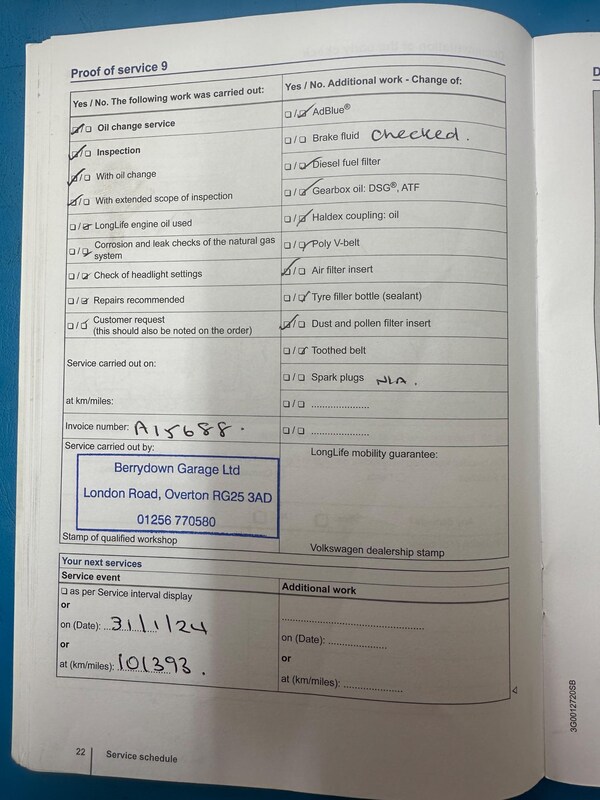 Proof of service 9
Yes / No. The following work was carried out:
/ Oil change service
/ Inspection
/ With oil change
/ With extended scope of inspection
/ LongLife engine oil used
/ Corrosion and leak checks of the natural gas
system
/ Check of headlight settings
/ Repairs recommended
/ Customer request
(this should also be noted on the order)
Service carried out on:
at km/miles:
Invoice number: A15688.
Service carried out by:
Berrydown Garage Ltd
London Road, Overton RG25 3AD
01256 770580
Stamp of qualified workshop
Yes / No. Additional work - Change of:
/ AdBlue®
/ Brake fluid checked.
/ Diesel fuel filter
/ Gearbox oil: DSG®, ATF
/ Haldex coupling: oil
/ Poly V-belt
/ Air filter insert
/ Tyre filler bottle (sealant)
/ Dust and pollen filter insert
/ Toothed belt
/ Spark plugs N/A.
/ .....................
/ .....................
LongLife mobility guarantee:
Volkswagen dealership stamp
Your next services
Service event
as per Service interval display
or
on (Date): 31/1/24
or
at (km/miles): 101393.
Additional work
.....................
on (Date): .....................
or
at (km/miles): .....................
22
Service schedule
3G0012720SB
D